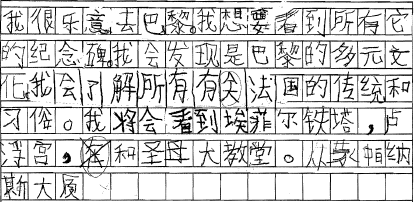 我很乐意去巴黎。我想要看到所有它
的纪念碑。我会发现是巴黎的多元文
化。我会了解所有有关法国的传统和
习俗。我将会看到埃菲尔铁塔，卢
浮宫，和圣母大教堂。从蒙帕纳
斯大厦